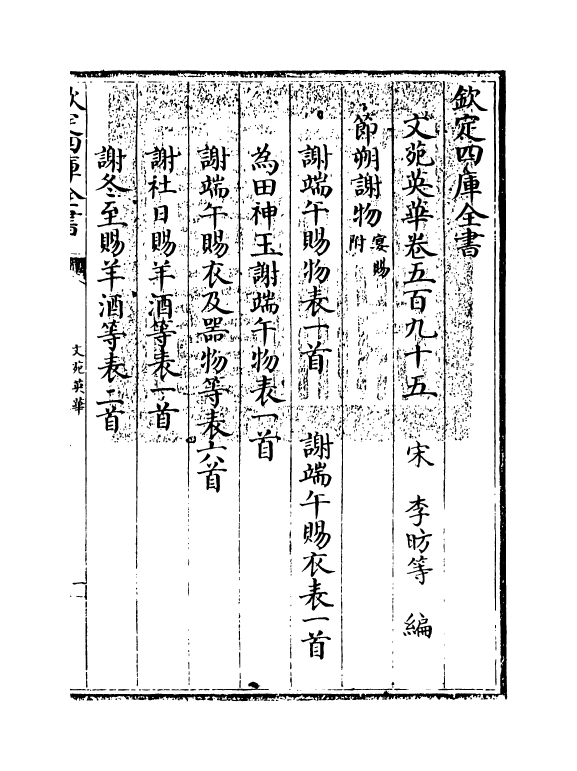 欽定四庫全書
文苑英華卷五百九十五 宋 李昉等 編
節朔謝物宴賜附
謝端午賜物表十首 謝端午賜衣表一首
為田神玉謝端午物表一首
謝端午賜衣及器物等表六首
謝社日賜羊酒等表一首
謝冬至賜羊酒等表二首
欽定四庫全書
文苑英華